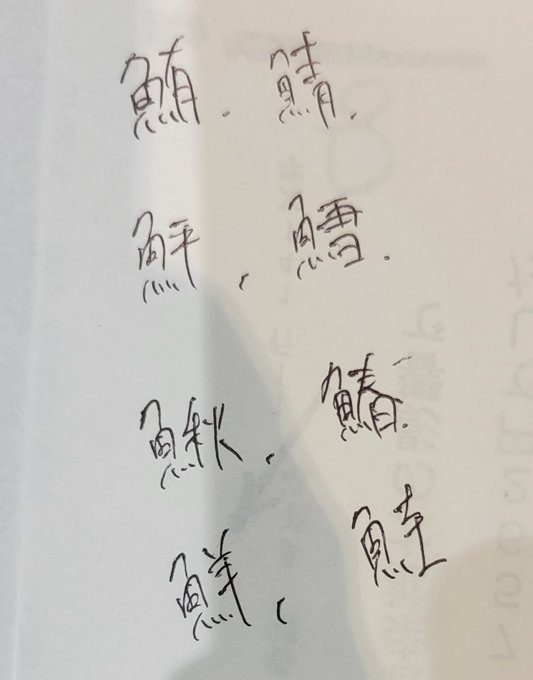 鮪.鯖.
鮃,鱈.
鰍,鰆.
鮮,鮭